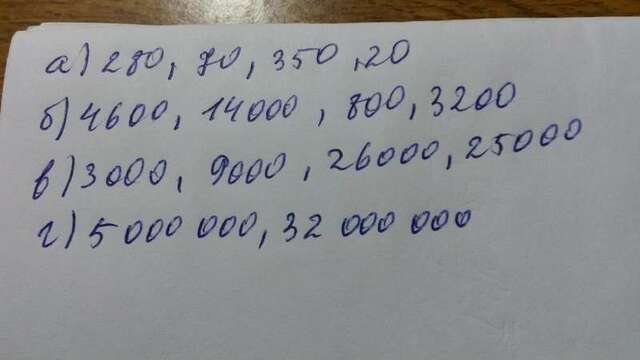 а) 280, 70, 350, 20
б) 4600, 14000, 800, 3200
в) 3000, 9000, 26000, 25000
г) 5 000 000, 32 000 000